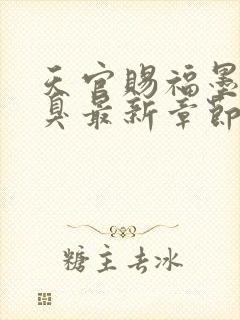 天官赐福墨
臭最新章節
糖主去冰